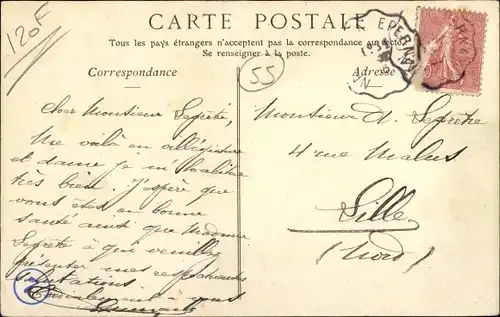 120F
CARTE POSTALE
Tous les pays étrangers n'acceptent pas la correspondance au recto
Se renseigner à la poste.
Correspondance
55
Adresse
EPERNAY
Cher Monsieur Lefretre,
Me voilà en villégiature
et dame je m'habitue
très bien. J'espère que
vous êtes en bonne
santé ainsi que Madame
Lefretre à qui veuillez
présenter mes respectueuses
salutations.
à vous
Monsieur A. Lefretre
4 rue Malus
Lille
(Nord)